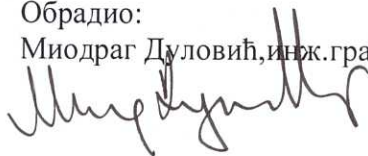 Обрадио:
Миодраг Дуловић,инж.гра